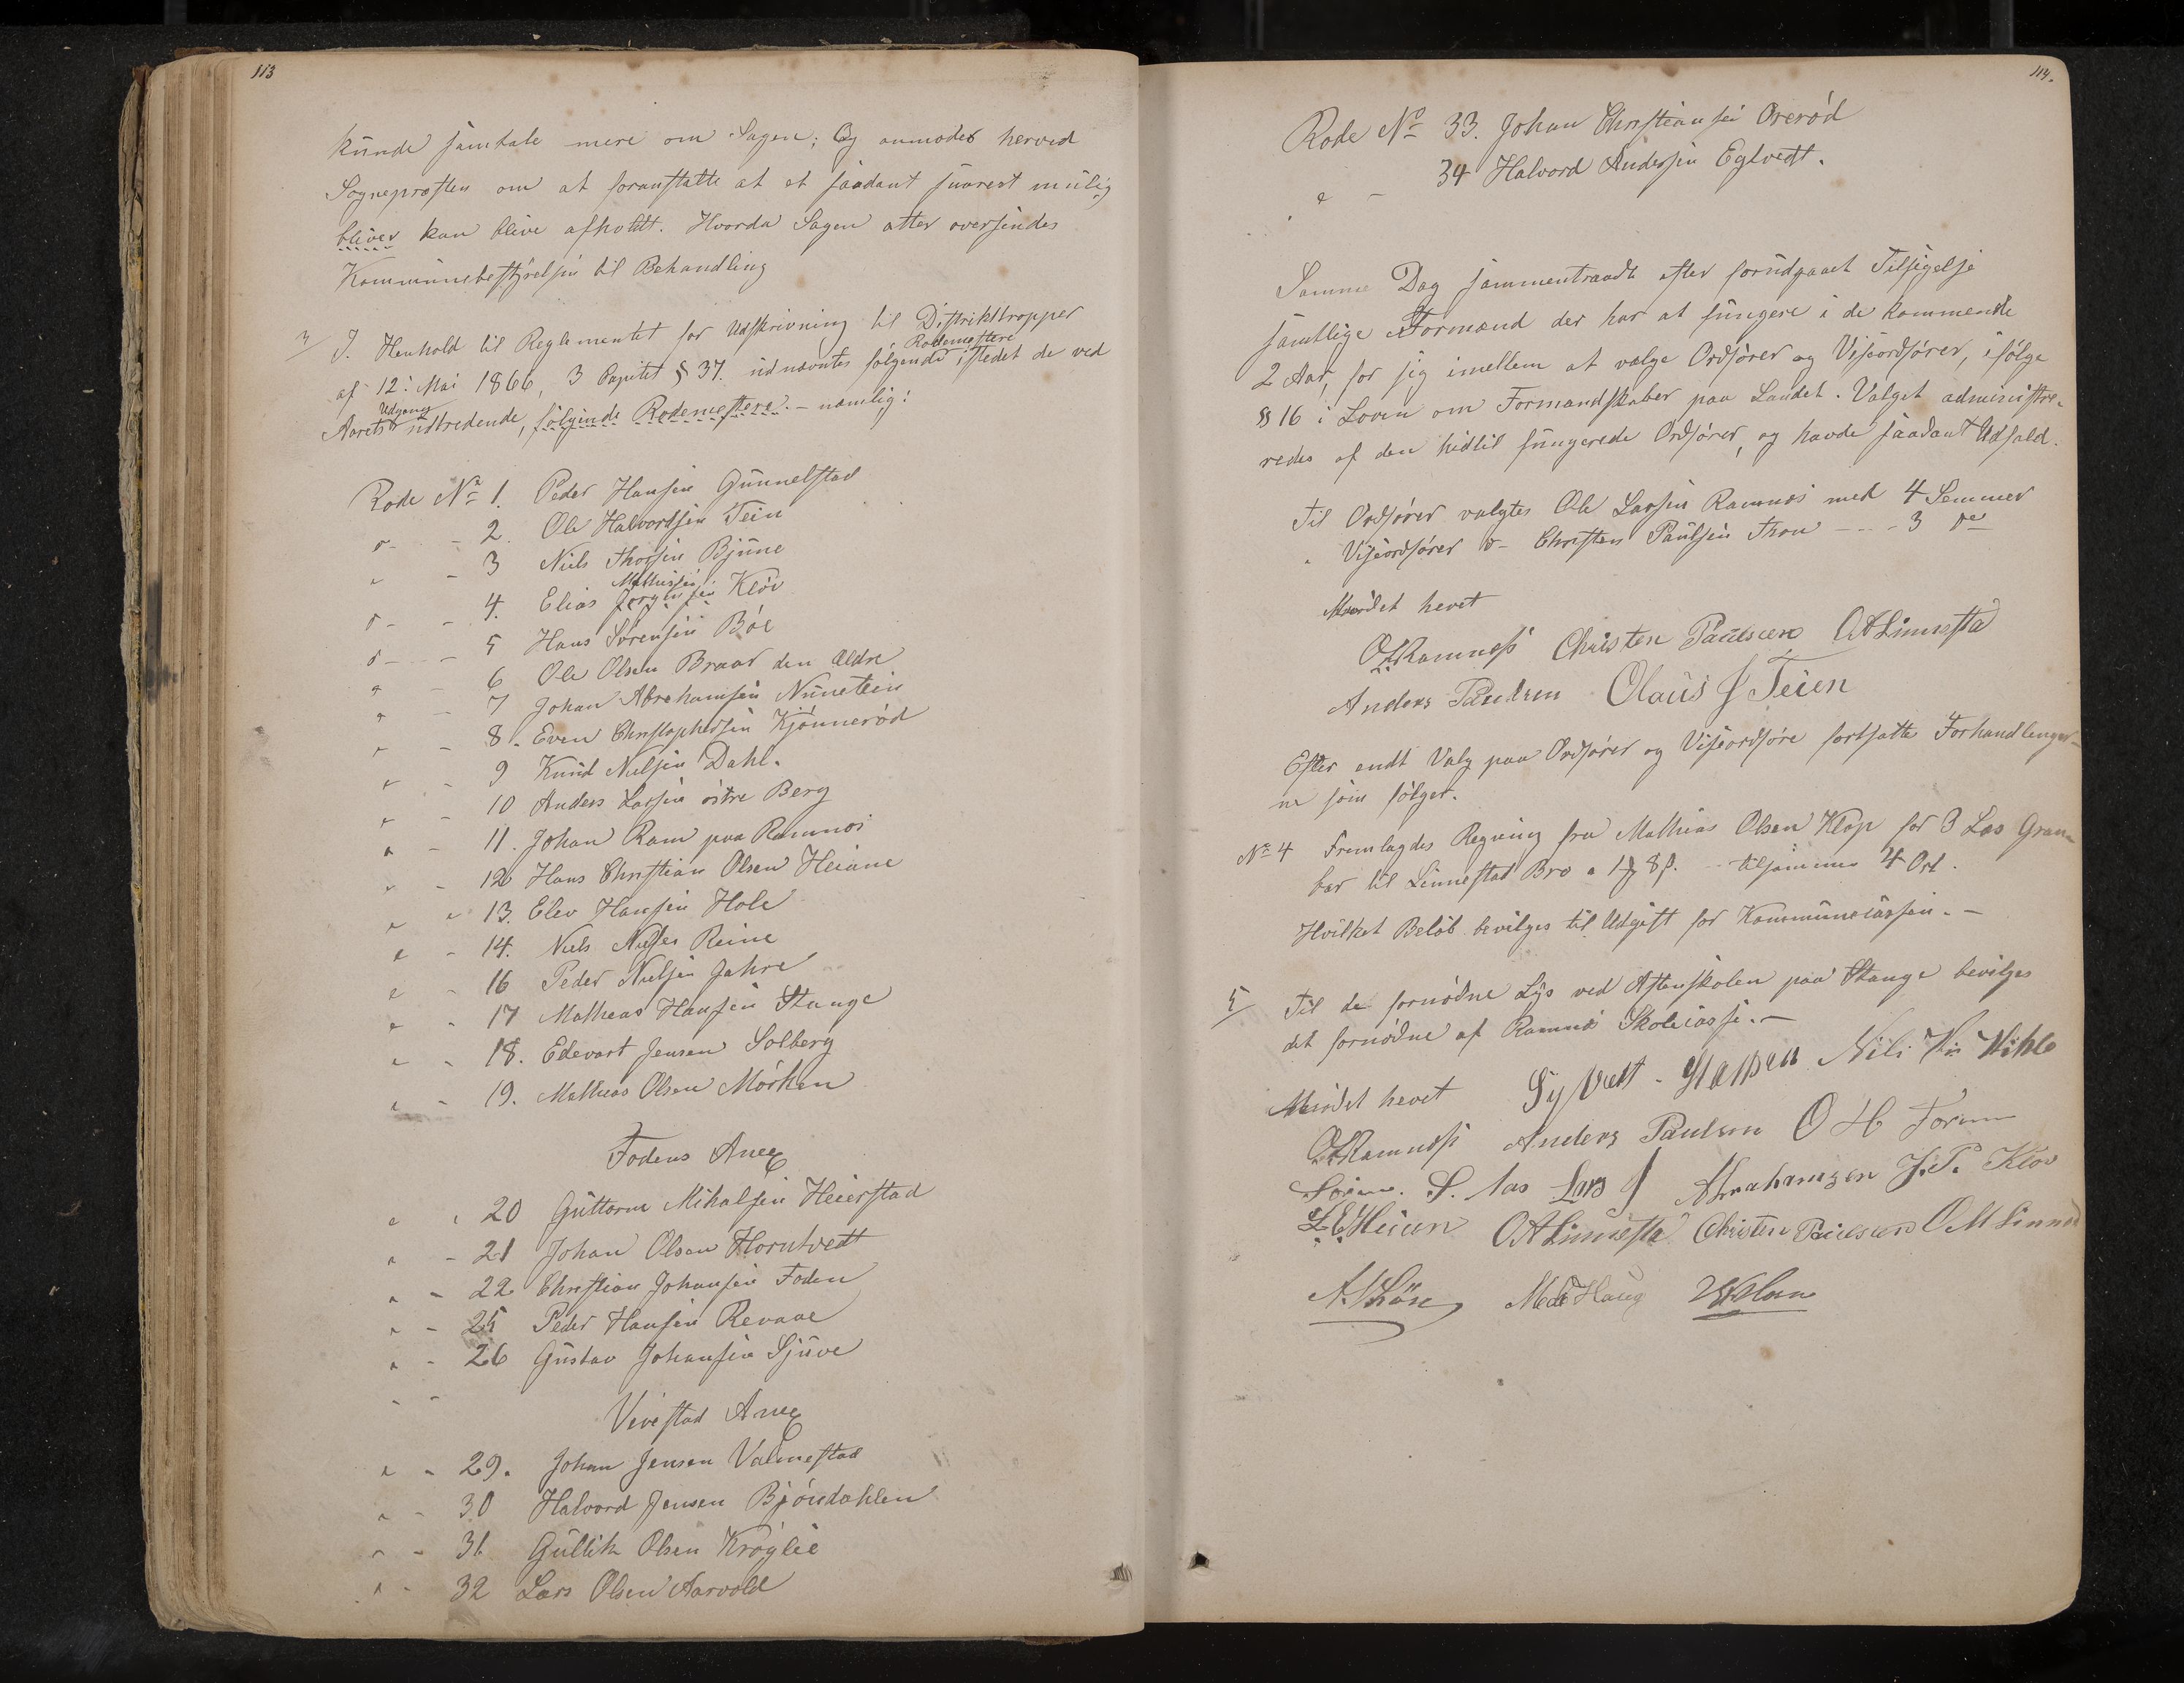 113
kunde samtale mere om Sagen; Og anmodes herved
Sognepræsten om at foranstalte at et saadant snarest mulig
bliver kan blive afholdt. Hvorda Sagen atter oversendes
Kommunebestyrelsen til Behandling
3/ I. Henhold til Reglementet for Udskrivning til Distriktstropper
af 12. Mai 1866, 3 Capitel § 37. udnævntes følgende Rodemestere istedet de ved
Aarets Udgang udtredende, følgende Rodemestere. – nemlig:
Rode No 1. Peder Hansen Gunnelstad
2. Ole Halvordsen Tein
3 Niels Thorsen Bjune
4. Elias Jørgensen Mathisen Kløv
5 Hans Sørensen Bøe
6 Ole Olsen Braar den Ældre
7 Johan Abrahamsen Nunetein
8. Even Christophersen Kjønnerød
9 Knud Nielsen Dahl.
10 Anders Larsen østre Berg
11. Johan Ram paa Ramnæs
12 Hans Christian Olsen Heiane
13. Elev Hansen Hole
14. Niels Reine
16 Peder Nielsen Jahre
17 Matheas Hansen Stange
18. Edevart Jensen Solberg
19. Mathias Olsen Mørken
Fodens Anex
20 Guttorm Mikalsen Heierstad
21 Johan Olsen Horntvedt
22 Christian Johansen Foden
25 Peder Hansen Revaae
26 Gustav Johansen Sjuve
Vivestad Anex
29. Johan Jensen Valmestad
30 Halvord Jensen Bjørndahlen
31 Gullik Olsen Krøglie
32 Lars Olsen Aarvold
114.
Rode No 33. Johan Christiansen Orerød
34 Halvord Andersen Eglvedt.
Samme Dag sammentraadt efter forudgaaet Tilsigelse
samtlige Formænd der har at fungere i de kommende
2 Aar, for sig imellem at vælge Ordfører og Viseordfører, ifølge
§ 16 i Loven om Formandskaber paa Landet. Valget administre-
redes af den hidtil fungerede Ordfører, og havde saadant Udfald.
Til Ordfører valgtes Ole Larsen Ramnæs med 4 Stemmer
" Viseordfører – Christen Paulsen Thon – 3 do
Mødet hevet
OLRamnæss Christen Paulsen OALinnesta
Anders Paulsen Olaus J Teien
Efter endt Valg paa Ordfører og Viseordføre fortsatte Forhandlinger-
ne som følger.
No 4 Fremlagdes Regning fra Mathias Olsen Klop for 3 Læs Gran
bar til Linnestad Bro a 1 8 s. – tilsammen 4 Ort.
Hvilket Beløb bevilges til Udgift for Kommunecassen. –
5/ Til de fornødne Lys ved Aftenskolen paa Stange bevilges
det fornødne af Ramnæs Skolecasse. –
Mødet hevet Syvert Hansen
OLRamnæss Anders Paulsen O H Forum
S. Aas Lars J Abrahamsen J.P. Kløv
L E Heian OALinnesta Christen Paulsen O M Linne
Haug